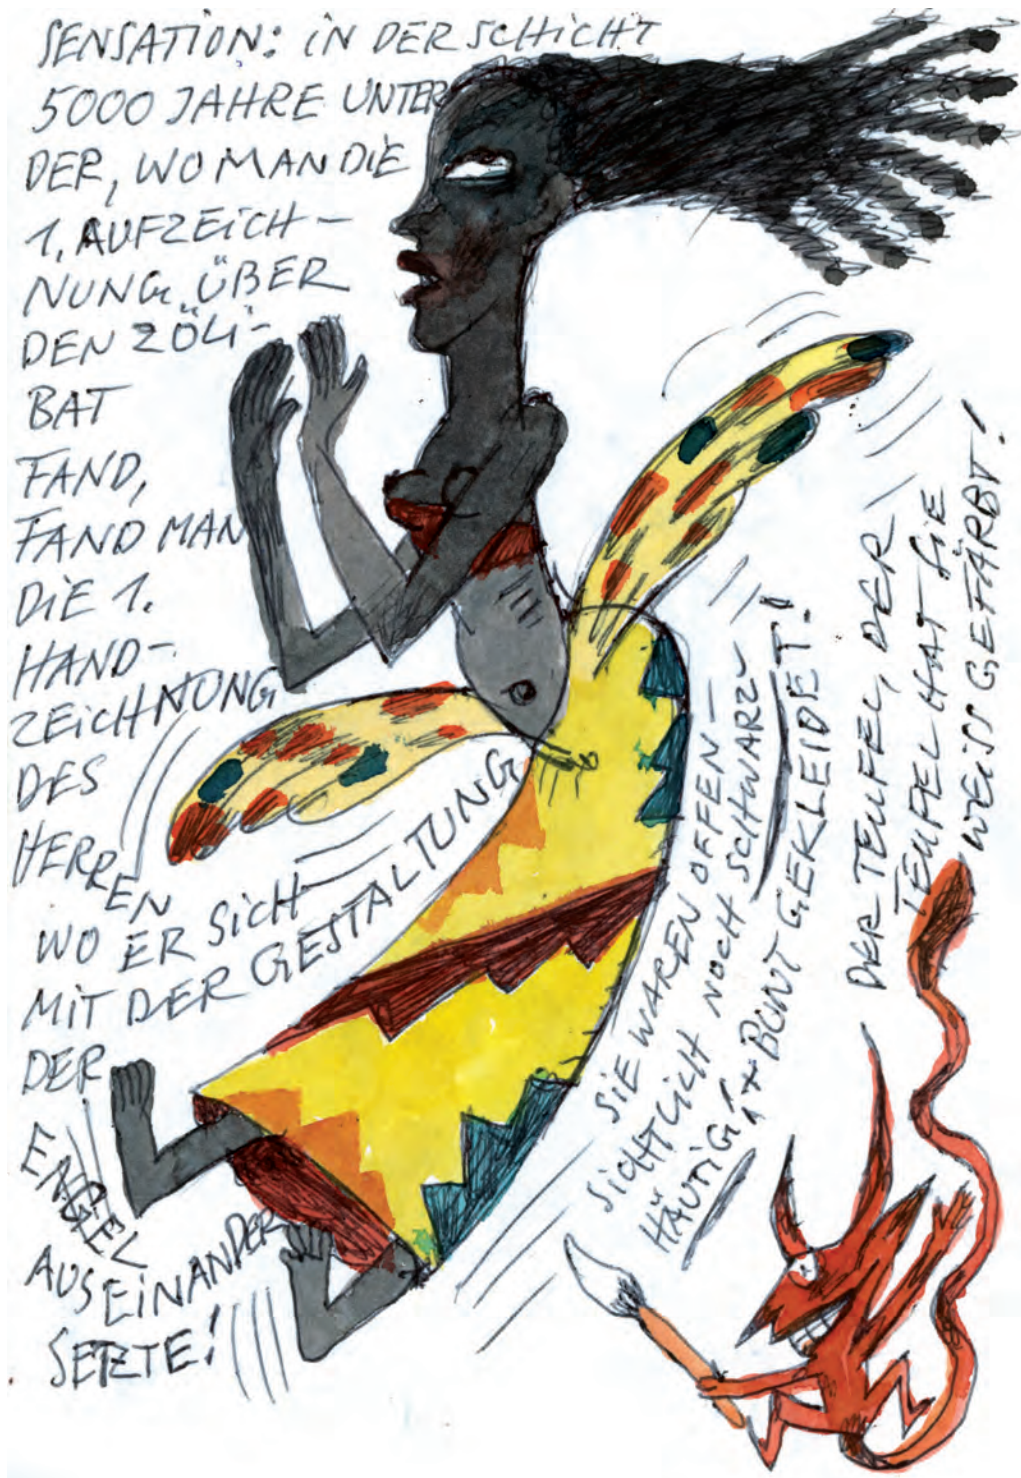 SENSATION: IN DER SCHICHT
5000 JAHRE UNTER
DER, WO MAN DIE
1. AUFZEICH-
NUNG ÜBER
DEN ZÖLI-
BAT
FAND,
FAND MAN
DIE 1.
HAND-
ZEICHNUNG
DES
HERREN
WO ER SICH
MIT DER GESTALTUNG
DER
ENGEL
AUSEINANDER
SETZTE!
SIE WAREN OFFEN-
SICHTLICH NOCH SCHWARZ-
HÄUTIG + BUNT GEKLEIDET!
DER TEUFEL, DER
TEUFEL HAT SIE
WEISS GEFÄRBT!